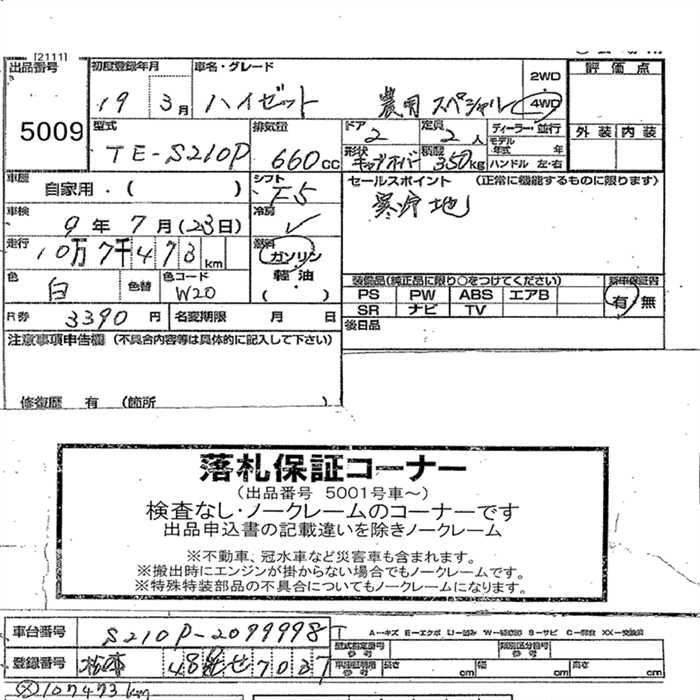 [2111]
出品番号 5009
初度登録年月 19 3月
車名・グレード ハイゼット 農用スペシャル
2WD
4WD
評価点
外装 内装
型式 TE-S210P
排気量 660cc
ドア 2
定員 2人
ディーラー・並行
モデル年式 年
形状 キャブオーバー
積載 350kg
ハンドル 左・右
車歴 自家用・( )
シフト F5
セールスポイント (正常に機能するものに限ります)
寒冷地
車検 9年7月(23日)
冷房 ✓
走行 10万7千473km
燃料 ガソリン
軽・油
( )
色 白
色替
色コード W20
装備品(純正品に限り○をつけてください)
PS PW ABS エアB
SR ナビ TV
新車保証書
有 無
R券 3390円
名変期限 月 日
後日品
注意事項申告欄 (不具合内容等は具体的に記入して下さい)
修復歴 有 (箇所 )
落札保証コーナー
(出品番号 5001号車~)
検査なし・ノークレームのコーナーです
出品申込書の記載違いを除きノークレーム
※不動車、冠水車など災害車も含まれます。
※搬出時にエンジンが掛からない場合でもノークレームです。
※特殊特装部品の不具合についてもノークレームになります。
車台番号 S210P-2099998
登録番号 松本 48 せ 7027
A-キズ E-エクボ U-凹み W-補修跡 S-サビ C-腐食 XX-交換済
型式指定番号
類別区分番号
車検証明用参考
長さ cm
幅 cm
高さ cm
107473km